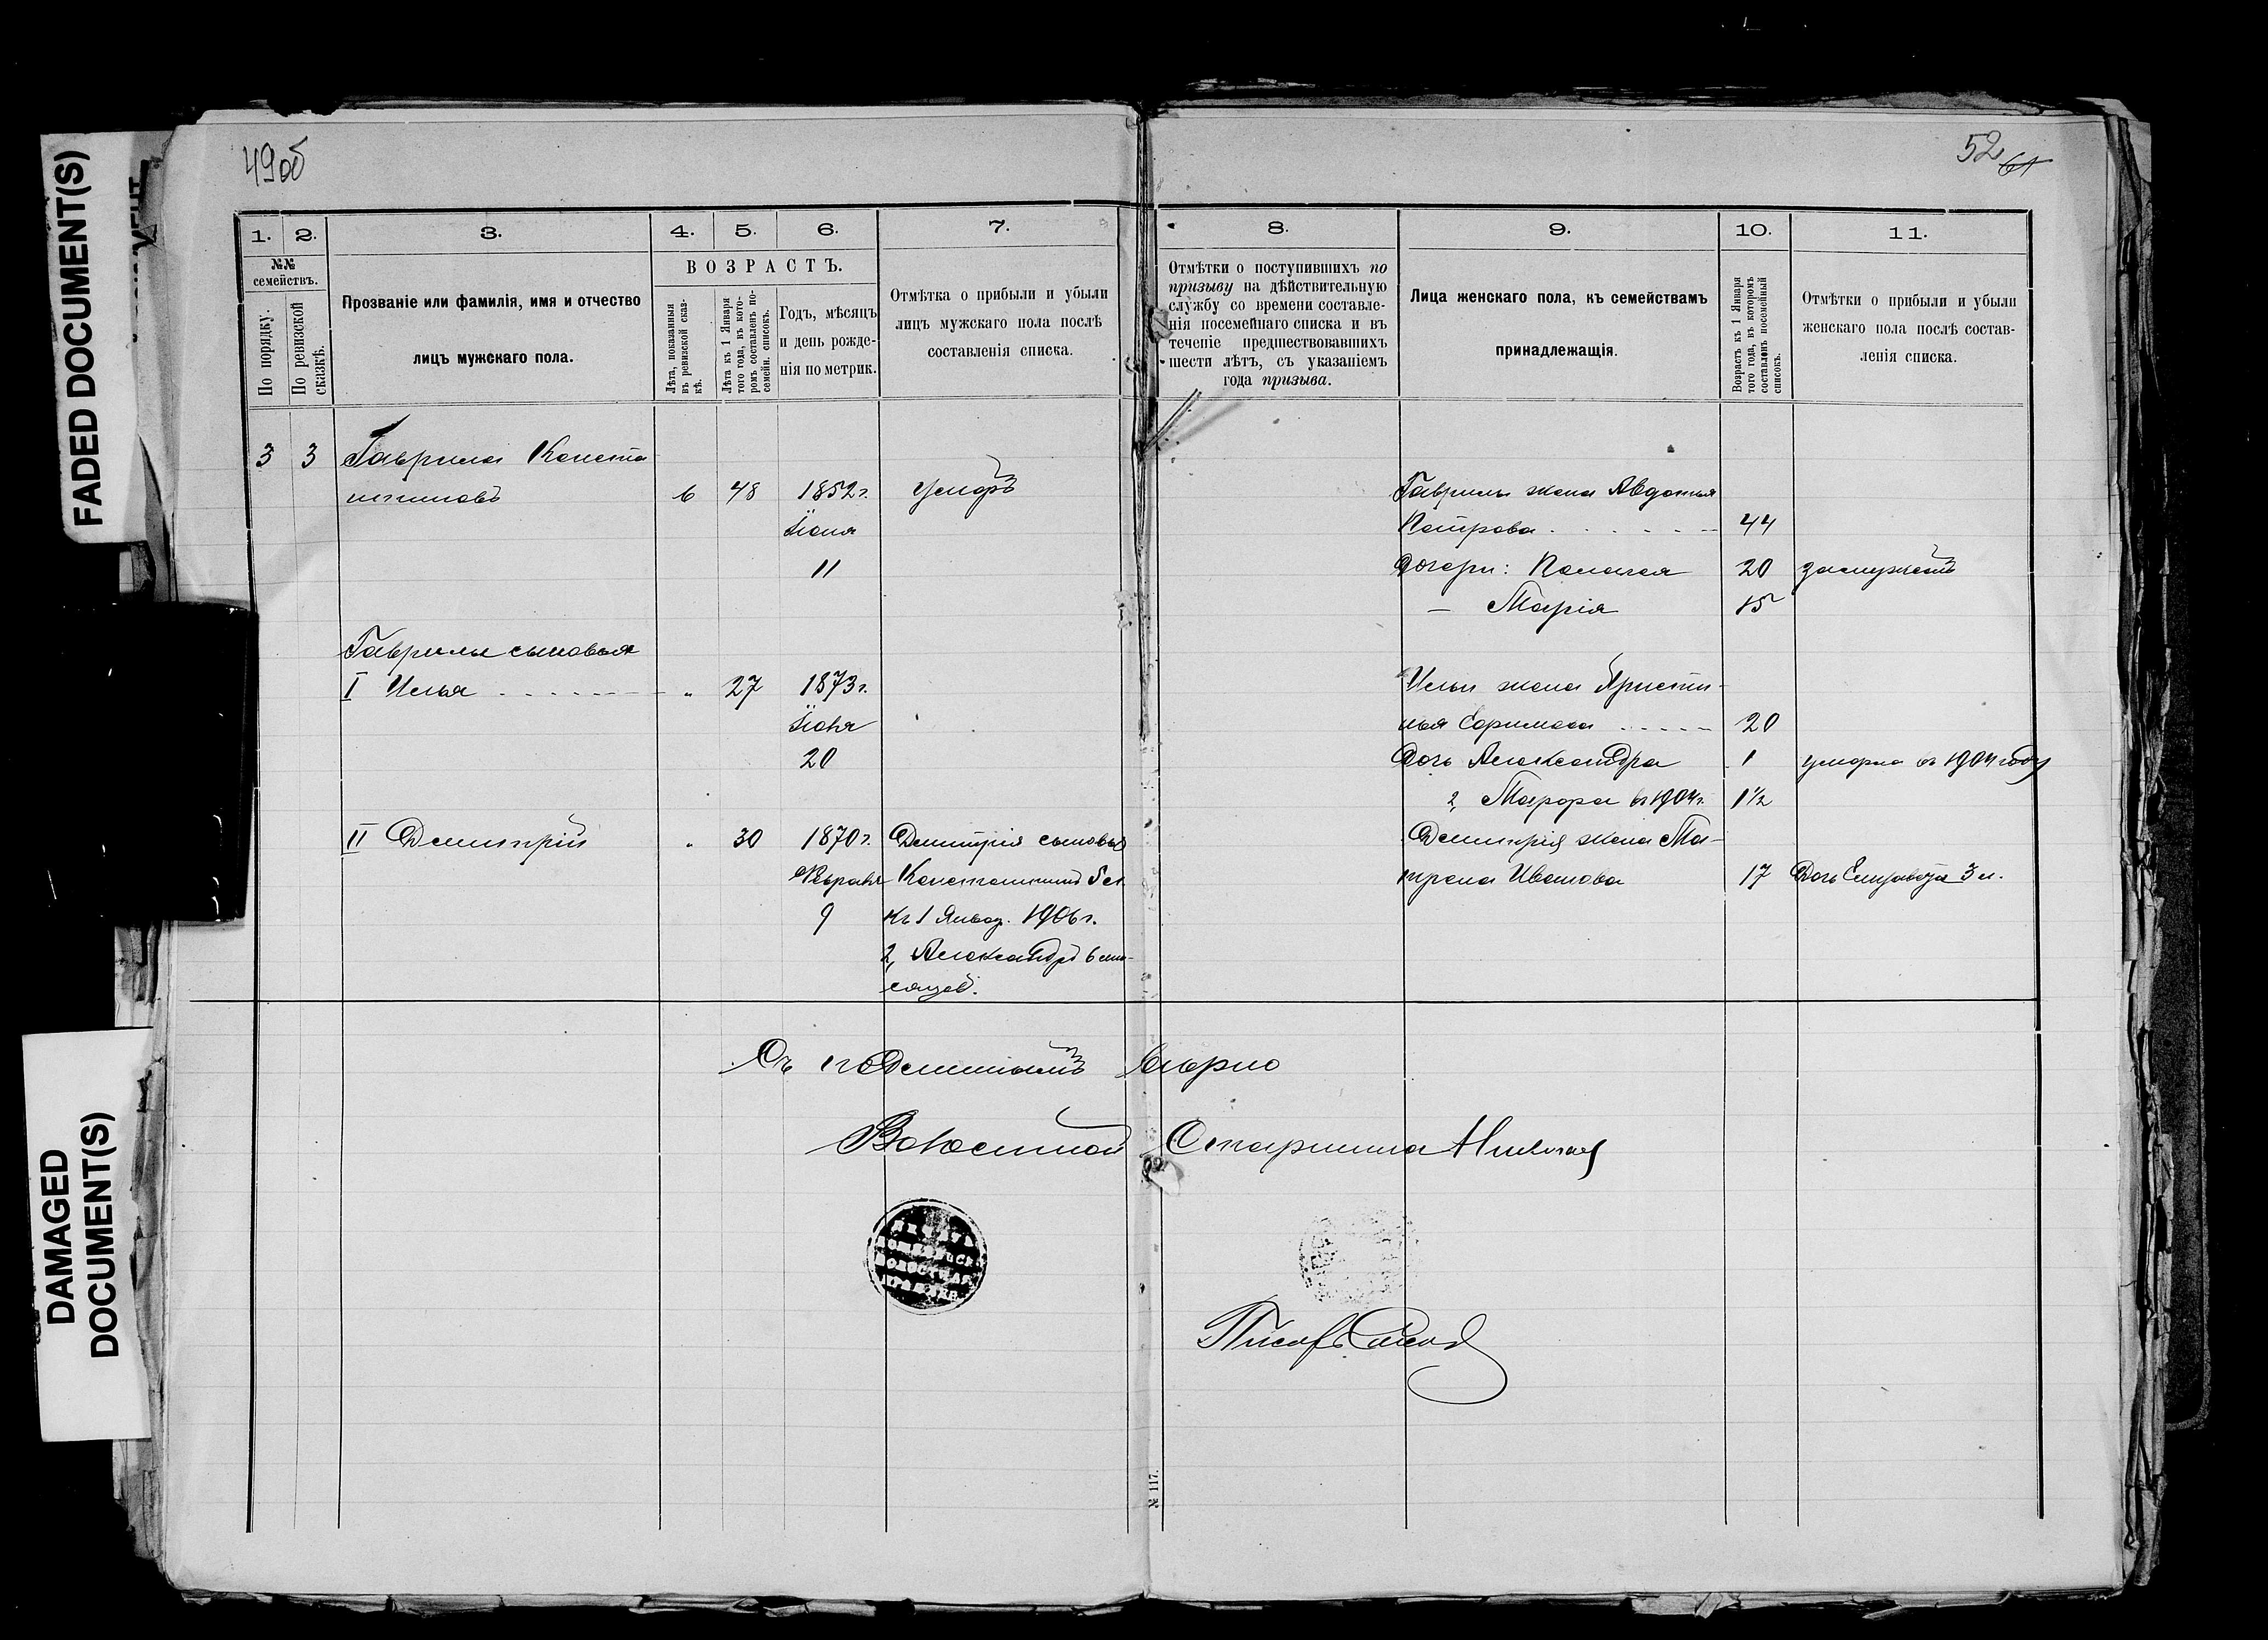 FADED DOCUMENT(S)
DAMAGED
DOCUMENT(S)
49об
1. 2. 3. 4. 5. 6. 7.
№№ семействъ.
По порядку.
По ревизской сказкѣ.
Прозваніе или фамилія, имя и отчество
лицъ мужскаго пола.
ВОЗРАСТЪ.
Лѣта, показанныя
въ ревизской сказ-
кѣ.
Лѣта къ 1 Января
того года, въ кото-
ромъ составленъ по-
семейн. списокъ.
Годъ, мѣсяцъ
и день рожде-
нія по метрик.
Отмѣтка о прибыли и убыли
лицъ мужскаго пола послѣ
составленія списка.
3 3 Гаврила Конста
нтиновъ 6 48 1852г. умеръ
Іюня
11
Гаврилы сыновья
I Илья " 27 1873г.
Іюня
20
II Дмитрій " 30 1870г. Дмитрія сыновья
Февраля Константинъ 5 л.
9 къ 1 Январ. 1906г.
2, Александръ 6 мѣ-
сяцов.
52 61
8. 9. 10. 11.
Отмѣтки о поступившихъ по
призыву на дѣйствительную
службу со времени составле-
нія посемейнаго списка и въ
теченіе предшествовавшихъ
шести лѣтъ, съ указаніемъ
года призыва.
Лица женскаго пола, къ семействамъ
принадлежащія.
Возрастъ къ 1 Января
того года, въ которомъ
составленъ посемейный
списокъ.
Отмѣтки о прибыли и убыли
женскаго пола послѣ состав-
ленія списка.
Гаврилы жена Авдотья
Петрова 44
Дочери: Пелагея 20 замужемъ
— Марія 15
Ильи жена Христи-
нья 20
Дочь Александра 1 умерла въ 1904 году
2, въ 1904г. 1½
Дмитрія жена Ма-
трена Иванова 17 Дочь Елизавета 3 л.
Съ подлиннымъ вѣрно
Волостной Старшина Николаев
ВОЛОСТНАЯ
Писарь
№ 117.